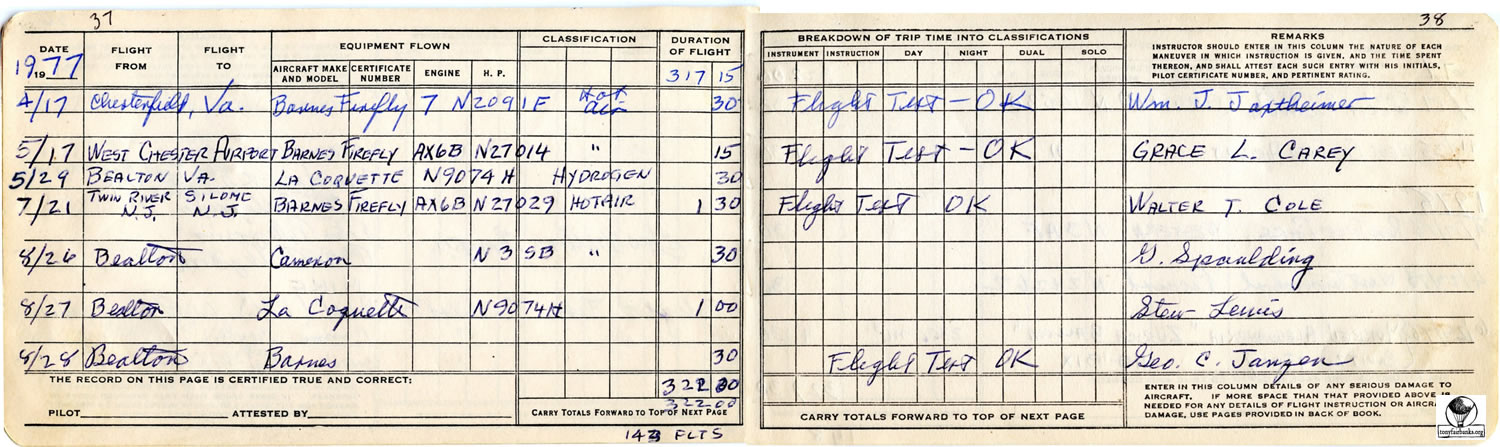 37
38
DATE FLIGHT FROM FLIGHT TO EQUIPMENT FLOWN CLASSIFICATION DURATION OF FLIGHT
AIRCRAFT MAKE AND MODEL CERTIFICATE NUMBER ENGINE H. P.
BREAKDOWN OF TRIP TIME INTO CLASSIFICATIONS
INSTRUMENT INSTRUCTION DAY NIGHT DUAL SOLO
REMARKS
INSTRUCTOR SHOULD ENTER IN THIS COLUMN THE NATURE OF EACH
MANEUVER IN WHICH INSTRUCTION IS GIVEN, AND THE TIME SPENT
THEREON, AND SHALL ATTEST EACH SUCH ENTRY WITH HIS INITIALS,
PILOT CERTIFICATE NUMBER, AND PERTINENT RATING.
1977 317 15
4/17 Chesterfield, Va. Barnes Firefly 7 N2091F Hot air 30 Flight Test - OK Wm. J.
5/17 WEST CHESTER AIRPORT BARNES FIREFLY AX6B N27014 " 15 Flight Test - OK GRACE L. CAREY
5/29 BEALTON VA. LA COQUETTE N9074H HYDROGEN 30
7/21 TWIN RIVER N.J. SILOME N.J. BARNES FIREFLY AX6B N27029 HOTAIR 1 30 Flight Test OK WALTER T. COLE
8/26 Bealton Cameron N35B " 30 G. Spaulding
8/27 Bealton La Coquette N9074H 1 00 Stew Lewis
8/28 Bealton Barnes 30 Flight Test OK Geo. C. Janzen
THE RECORD ON THIS PAGE IS CERTIFIED TRUE AND CORRECT:
322 00
PILOT ATTESTED BY CARRY TOTALS FORWARD TO TOP OF NEXT PAGE
CARRY TOTALS FORWARD TO TOP OF NEXT PAGE
ENTER IN THIS COLUMN DETAILS OF ANY SERIOUS DAMAGE TO
AIRCRAFT. IF MORE SPACE THAN THAT PROVIDED ABOVE IS
NEEDED FOR ANY DETAILS OF FLIGHT INSTRUCTION OR AIRCRA
DAMAGE, USE PAGES PROVIDED IN BACK OF BOOK.
FLTS
tonyfairbanks.org